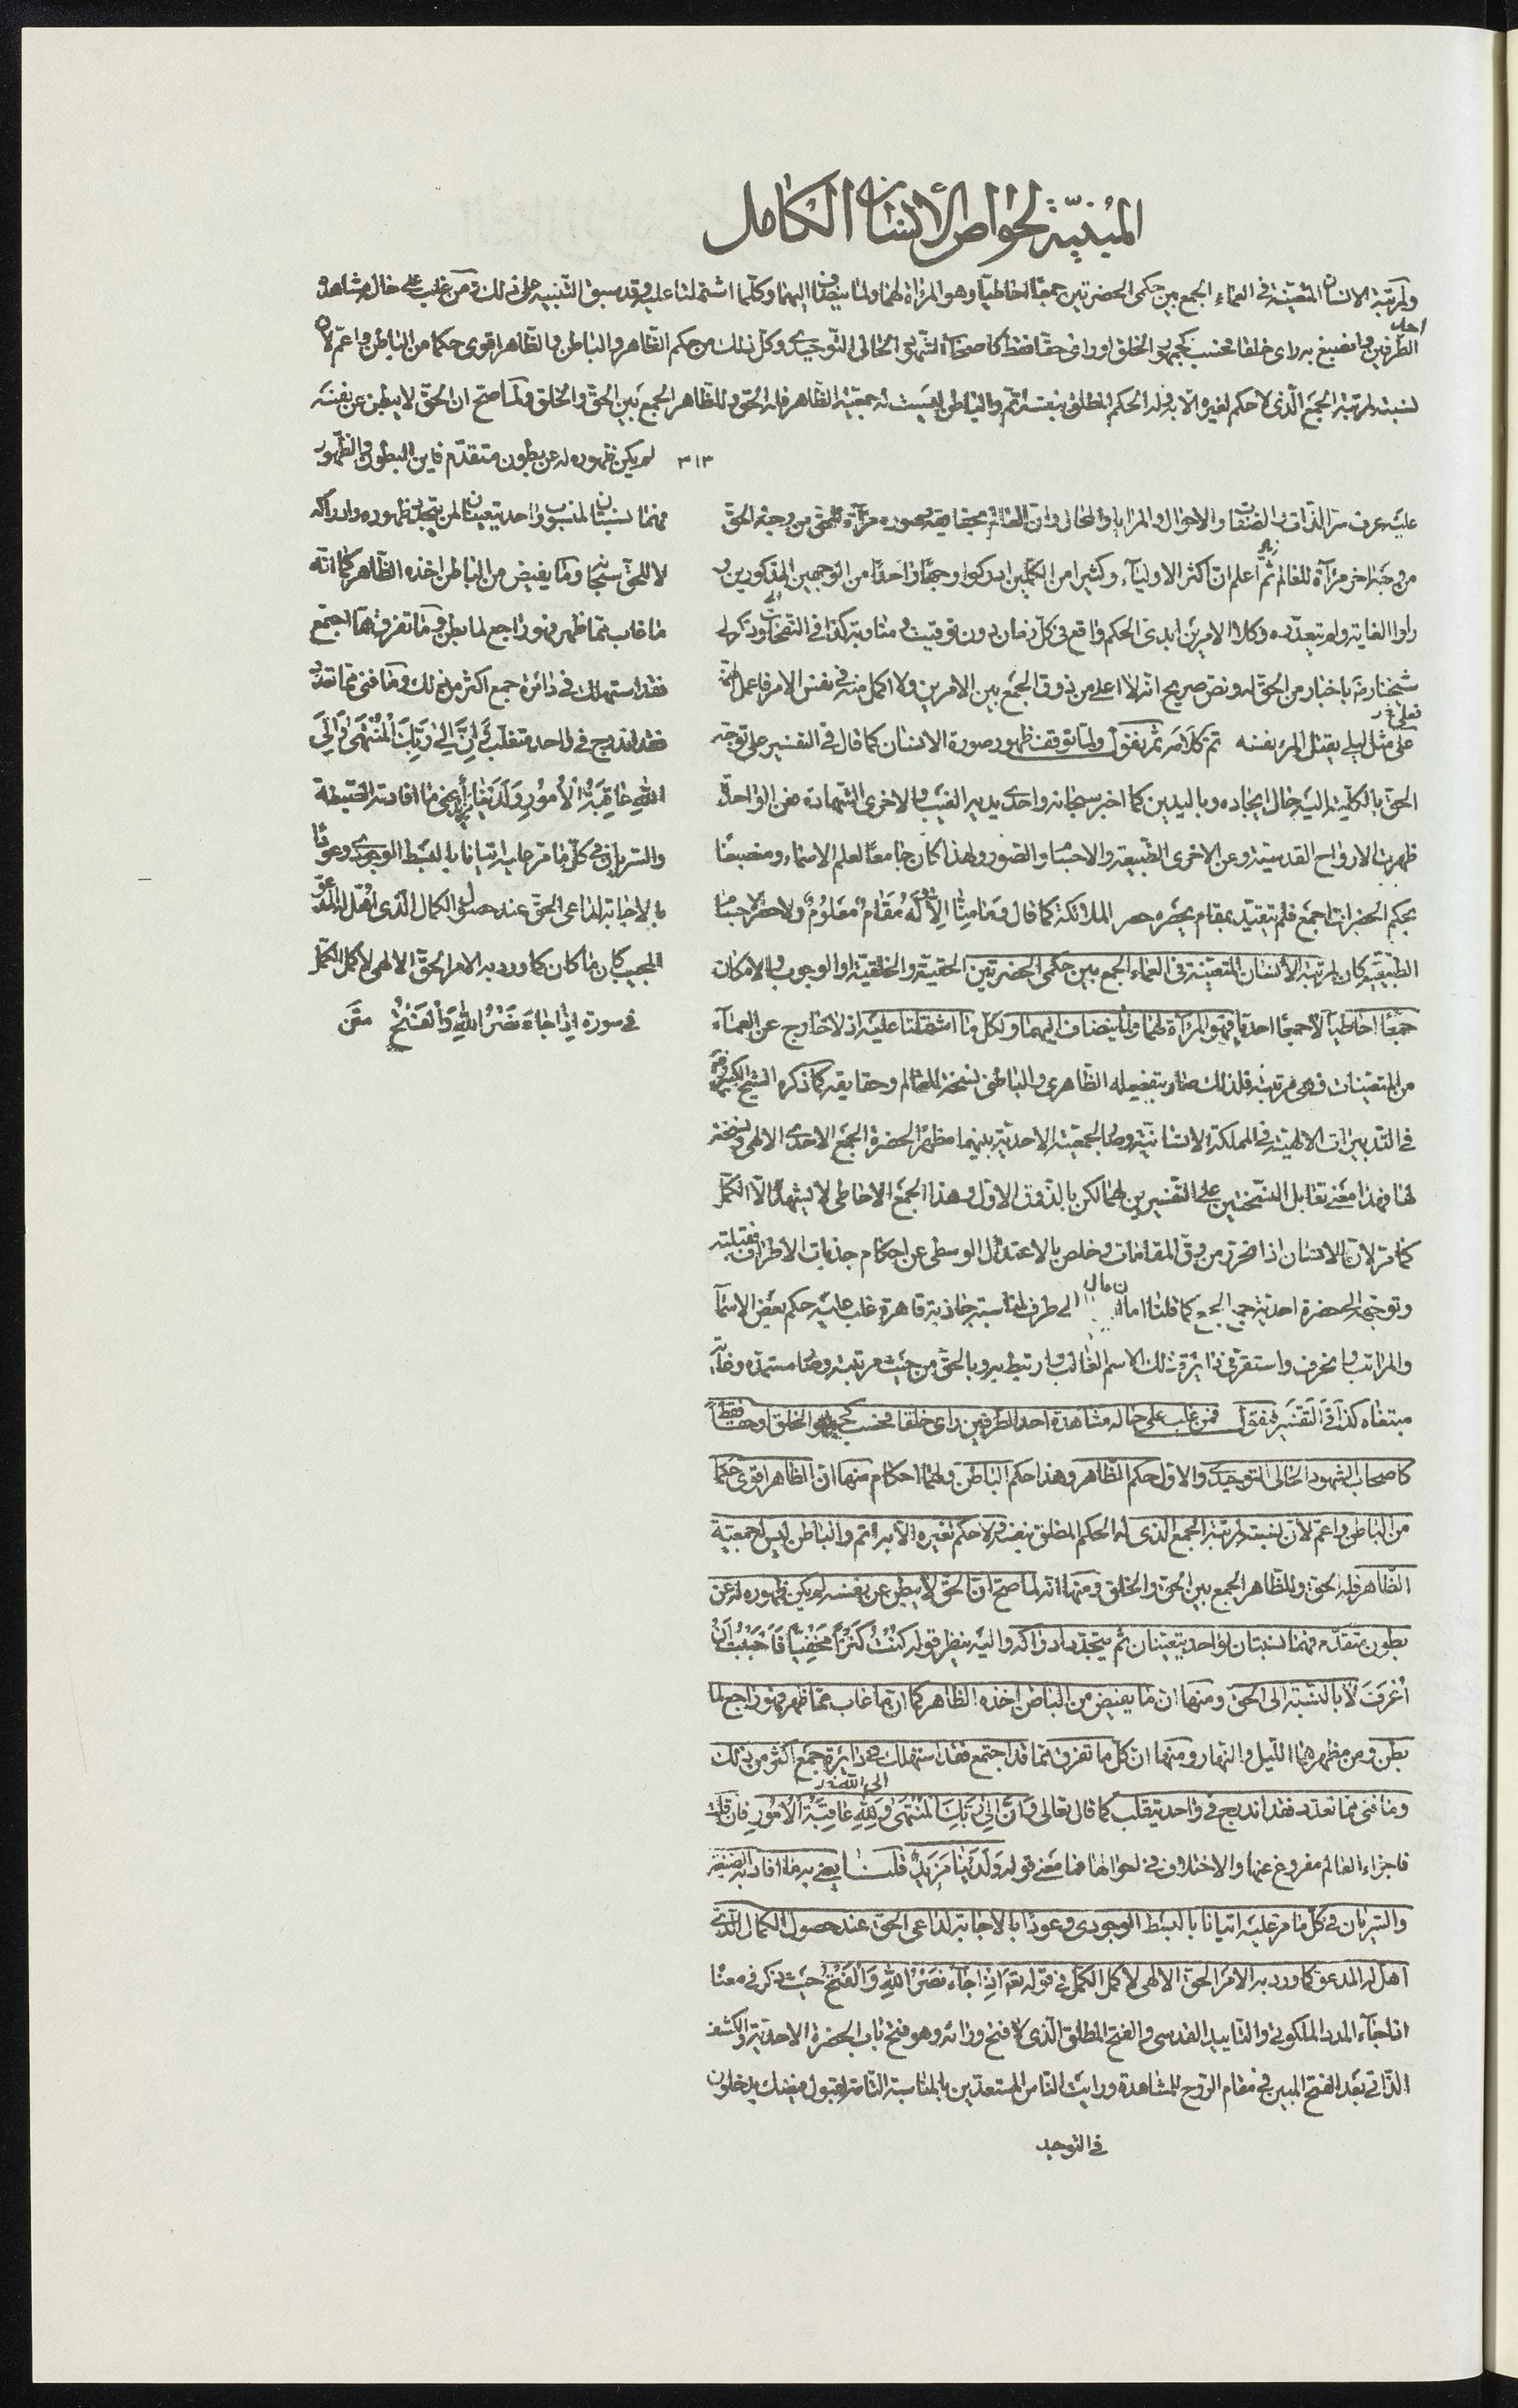 المبنيّة لخواص الأنسان الكامل
ولمرتبة الانسان المتعيّنة فى العماء الجمع بين حكمى الحضرتين جمعًا احاطيّا وهو المرآة لهما ولما ينضاف اليهما وكلّما اشتملتا عليه وقد سبق التنبيه على ذلك ومن غلب على حاله مشاهدة
احد
الطرفين وانصبغ به راى خلقا فحسب كجمهور الخلق او راى حقا فقط كاصحاب الشهود الحالى التوحيدى وكل ذلك من حكم الظاهر والباطن والظاهر اقوى حكما من الباطن واعمّ لأن
نسبته لمرتبة الجمع الّذى لا حكم لغيره الّا به وله الحكم المطلق بنفسه اتم والباطن ليست له جمعيّة الظّاهر فله الحق وللظّاهر الجمع بين الحقّ والخلق ولمّا صحّ ان الحقّ لا يبطن عن نفسه
٣١٣ لم يكن ظهوره له عن بطون متقدّم فاين البطون والظّهور
فهما نسبتان لمنسوب واحد يتعينان لمن يتجدّد ظهوره وادراكه
لا للحقّ سبحانه وما يفيض من الباطن اخذه الظّاهر كما انّه
ما غاب ممّا ظهر فهو راجع لما بطن وما تفرق ممّا اجتمع
فقد استهلك فى دائرة جمع اكثر من ذلك وما فنى ممّا تعدّد
فقد اندرج فى واحد متقلّب وَاِنَّ اِلىٰ رَبِّكَ الْمُنْتَهىٰ وَاِلَى
اللّٰهِ عَاقِبَةُ الْاُمُورِ وَلَدَيْنَا مَزِيدٌ يعنى ما افادته الحيطة
والسريان فى كلّ ما مرّ عليه اتيانا بالبسط الوجودى وعودًا
بالاجابة لداعى الحقّ عند حصول الكمال الّذى اهّل له المدعوّ
المجيب كان ما كان كما ورد به الامر الحقّ الالهى لأكمل الكمّل
فى سورة اِذَا جَاءَ نَصْرُ اللّٰهِ وَالْفَتْحُ
عليه عرف سرّ الذات والصّفات والاحوال والمرايا والمحالى وان العالم بحقايقه وصوره مرآة للحقّ من وجه الحقّ
من وجه اخر مرآة للعالم ثمّ اعلم انّ اكثر الاولياء وكثيرا من الكمّلين ادركوا وجها واحدًا من الوجهين المذكورين و
راوا الغاية ولم يتعدّوه وكلا الامرين ابدىّ الحكم واقع فى كلّ زمان دون توقيت ومناوبة كذا فى النفحات وذكر لى
شيخنا رضه باخبار من الحقّ له ونصّ صريح انّه لا اعلى من ذوق الجمع بين الامرين ولا اكمل منه فى نفس الامر فاعمل لهمّة
على مثل ليلى يقتل المرء نفسه تم كلامه ثم نقول ولمّا توقف ظهور صورة الانسان كما قال فى التفسير على توجّه
الحق بالكلّية اليه حال ايجاده وباليدين كما اخبر سبحانه واحدى يديه الغيب والاخرى الشهادة فعن الواحدة
ظهرت الارواح القدسيّة وعن الاخرى الطّبيعة والاجسام والصّور ولهذا كان جامعًا لعلم الاسماء ومنصبغًا
بحكم الحضرات اجمع فلم يتقيّد بمقام يحصره حصر الملائكة كما قال وَمَا مِنَّا اِلَّا لَهُ مَقَامٌ مَعْلُومٌ ولا حصر الاجسام
الطّبيعيّة كان لمرتبة الأنسان المتعيّنة فى العماء الجمع بين حكمى الحضرتين الحقيّة والخلقيّة او الوجوب والامكان
جمعًا احاطيا لا جمعًا احديا فهو المرآة لهما ولما ينضاف اليهما ولكلّ ما اشتملتا عليه اذ لا خارج عن العماء
من المتعينات فهى مرتبته فلذلك صار بتفصيله الظّاهرى والباطنى نسخة للعالم وحقايقه كما ذكره الشيخ الكبير
فى التدبيرات الالهيّة فى المملكة الانسانيّة وصار بالجمعيّة الاحديّة بينهما مظهرًا لحضرة الجمع الاحدى الالهى ونسخة
لها فهذا معنى تقابل النسختين على التفسيرين لهما لكن بالذّوق الاوّل وهذا الجمع الاحاطى لا يشهده الّا الكمّل
كما مرّ لانّ الانسان اذا تحرّر من رقّ المقامات وخلص بالاعتدال الوسطى عن احكام جذبات الاطراف فقبلته
وتوجّهه لحضرة احديّة جمع الجمع كما قلنا اما ان مال الى طرف لمناسبة جاذبة قاهرة غلب عليه حكم بعض الاسماء
والمراتب وانحرف واستقرّ فى دائرة ذلك الاسم الغالب وارتبط به وبالحقّ من حيث مرتبته وصار مستمدّه وغاية
مبتغاه كذا فى التفسير فنقول فمن غلب على حاله مشاهدة احد الطرفين راى خلقا فحسب كجمهور الخلق او حقا فقط
كاصحاب الشهود الحالى التوحيدى والاول حكم الظّاهر وهذا حكم الباطن ولهما احكام منها انّ الظاهر اقوى حكما
من الباطن واعمّ لأن نسبته لمرتبة الجمع الذى له الحكم المطلق بنفسه ولا حكم لغيره الّا به اتم والباطن ليس له جمعيّة
الظّاهر فله الحق وللظّاهر الجمع بين الحقّ والخلق ومنها انه لما صحّ انّ الحقّ لا يبطن عن نفسه لم يكن ظهوره له عن
بطون متقدّم فهما نسبتان لواحد يتعيّنان ثم يتجدّد ادراكه واليه ينظر قوله كُنْتُ كَنْزًا مَخْفِيًّا فَاَحْبَبْتُ اَنْ
اُعْرَفَ لا بالنسبة الى الحق ومنها ان ما يفيض من الباطن اخذه الظاهر كما ان ما غاب ممّا ظهر فهو راجع لما
بطن ومن مظهرهما اللّيل والنهار ومنها ان كلّ ما تفرق ممّا قد اجتمع فقد استهلك فى دائرة جمع اكثر من ذلك
وما فنى ممّا تعدّد فقد اندرج فى واحد يتقلّب كما قال تعالى وَاَنَّ اِلىٰ رَبِّكَ الْمُنْتَهىٰ وَلِلّٰهِ عَاقِبَةُ الْاُمُورِ فان قلت
فاجزاء العالم مفروغ عنها والاختلاف فى احوالها فما معنى قوله وَلَدَيْنَا مَزِيدٌ قلت يعنى به ما افاد به الصنعة
والسريان فى كلّ ما مرّ عليه اتيانا بالبسط الوجودى وعودًا بالاجابة لداعى الحقّ عند حصول الكمال الّذى
اهّل له المدعوّ كما ورد به الامر الحقّ الالهى لأكمل الكمّل فى قوله تعه اِذَا جَاءَ نَصْرُ اللّٰهِ وَالْفَتْحُ حيث ذكر فى معناه
اذا جاء المدد الملكوتى والتاييد القدسى والفتح المطلق الّذى لا فتح ورائه وهو فتح باب الحضرة الاحديّة والكشف
الذّاتى بعد الفتح المبين فى مقام الرّوح للمشاهدة ورايت النّاس المستعدّين بالمناسبة التّامّة لقبول فيضك يدخلون
فى التوحيد